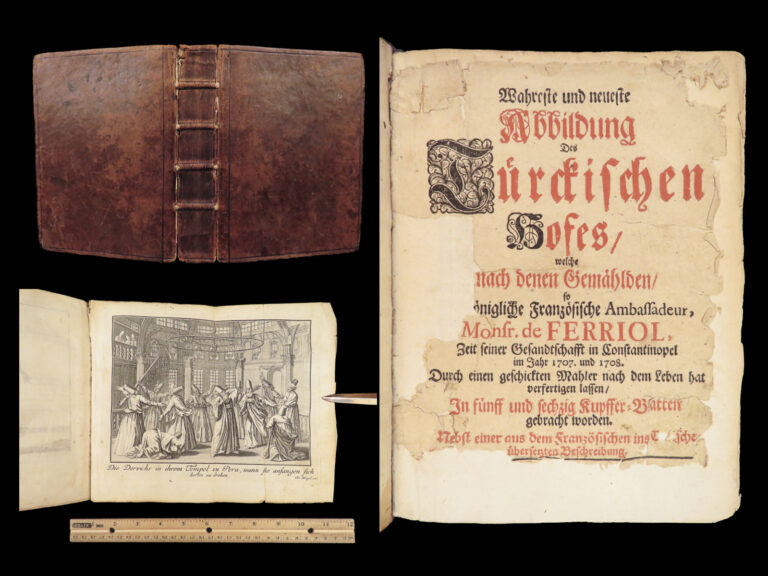 Wahreste und neueste
Abbildung
Des
Türckischen
Hofes/
welche
nach denen Gemählden/
so
önigliche Französische Ambassadeur,
Monsr. de FERRIOL,
Zeit seiner Gesandtschafft in Constantinopel
im Jahr 1707. und 1708.
Durch einen geschickten Mahler nach dem Leben hat
verfertigen lassen/
In fünff und sechzig Kupffer-Blätten
gebracht worden.
Nebst einer aus dem Französischen ins T sche
übersetzten Beschreibung.
Die Dervichs in ihrem Tempel zu Pera, wann sie anfangen sich
herum zu drehen
1 2 3 4 5 6 7 8 9 10 11 12